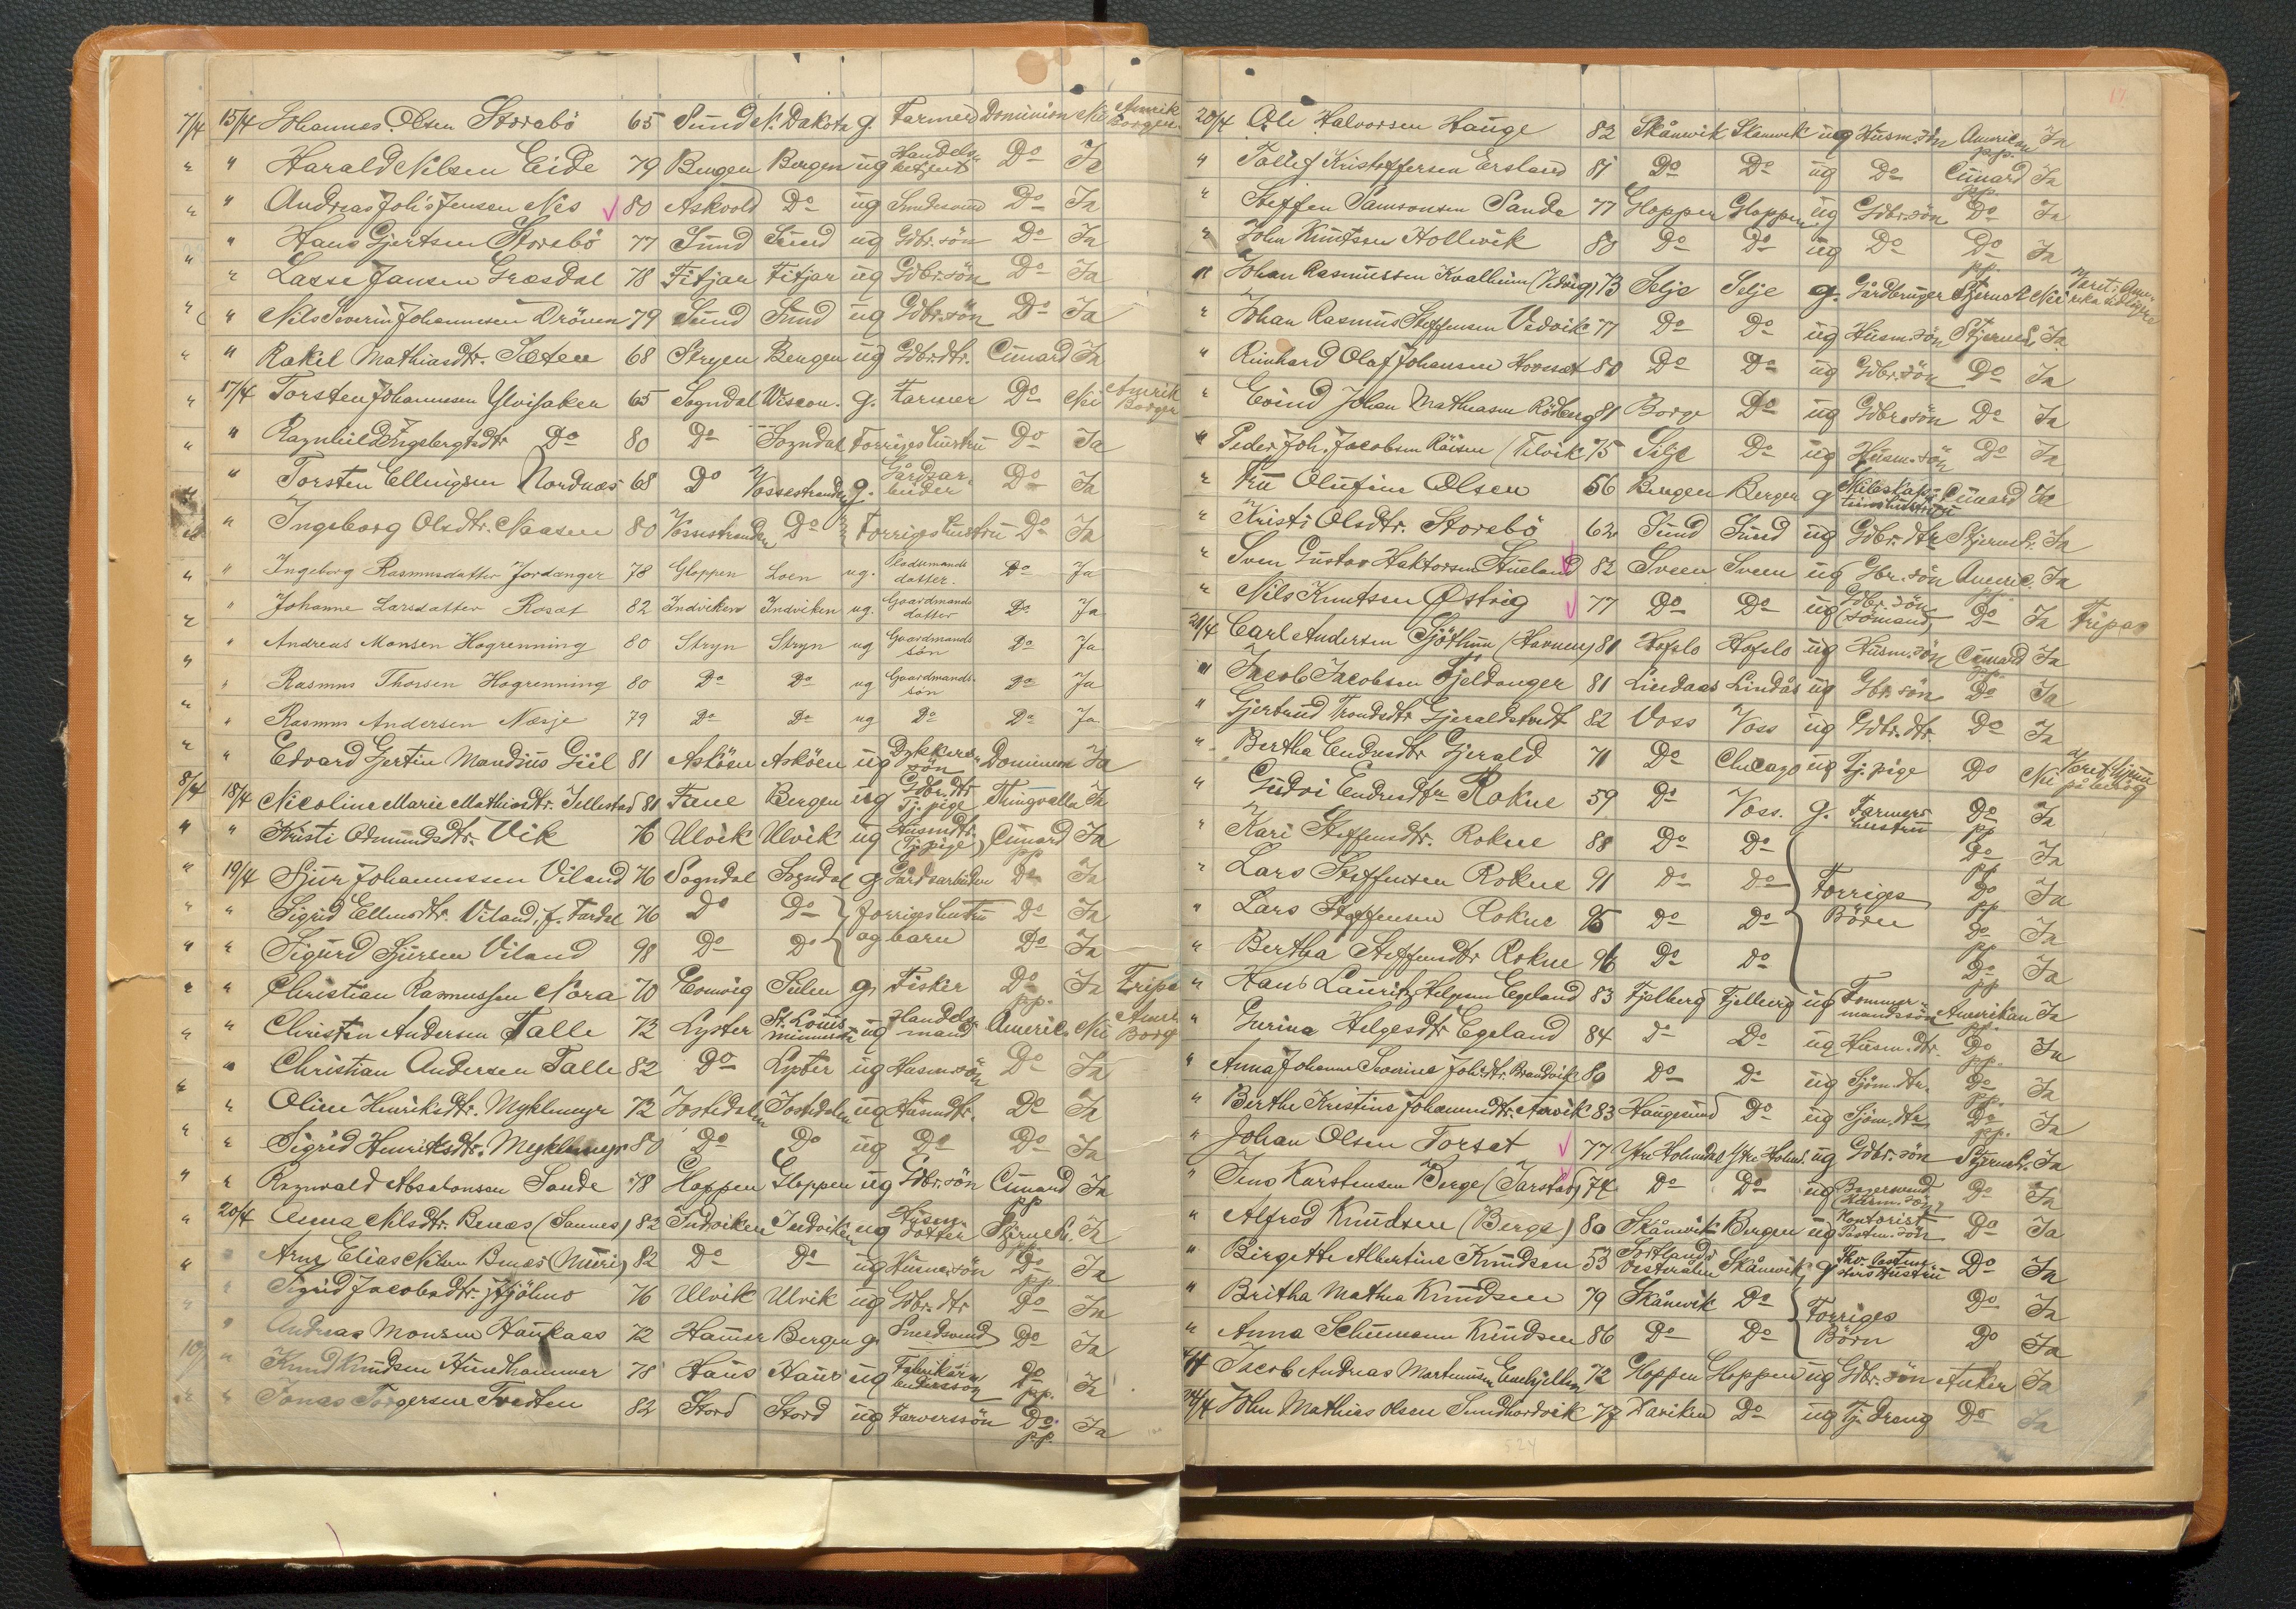 7/4 15/4 Johannes Olsen Storebö 65 Sund N. Dakota g. Farmer Dominion Nei Amerik Borger
" " Harald Nilsen Eide 79 Bergen Bergen ug Handels betjent Do Ja
" " Andreas Joh's Jensen Nes 80 Askvold Do ug Do Ja
" " Hans Gjertsen Storebö 77 Sund Sund ug Gdbr. sön Do Ja
" " Lasse Jansen Græsdal 78 Fitjar Fitjar ug Gdbr. sön Do Ja
" " Nils Severin Johannesen Drönen 79 Sund Sund ug Gdbr. sön Do Ja
" " Rakel Mathiasdtr. Sæten 68 Stryen Bergen ug Gdbr.dtr. Cunard Ja
" 17/4 Torsten Johannessen Ylvisaker 65 Sogndal Wiscon. g. Farmer Do Nei Amerik Borger
" " Ragnhild Ingebregtsdtr Do 80 Do Sogndal Forriges hustru Do Ja
" " Torsten Ellingsen Nordnæs 68 Do Vossestranden g. Gårdsar- beider Do Ja
" " Ingeborg Olsdtr. Naasen 80 Vossestranden Do Forriges hustru Do Ja
" " Ingeborg Rasmusdatter Jordanger 78 Gloppen Loen ug. datter. Do Ja
" " Johanne Larsdatter Rosæt 82 Indviken Indviken ug. Gaardmands datter Do Ja
" " Andreas Monsen Hogrenning 80 Stryn Stryn ug Gaardmands sön Do Ja
" " Rasmus Thorsen Hogrenning 80 Do Do ug Gaardmands. sön Do Ja
" " Rasmus Andersen Næsje 79 Do Do ug Do Do Ja
" " Edvard Gjertin Mandius Giil 81 Asköen Asköen ug Dykkers sön Dominion Ja
8/4 18/4 Nicoline Marie Mathiasdtr. Tellestad 81 Fane Bergen ug Gdbr. dtr Tj. pige Thingvalla Ja
" " Kristi Odmundsdtr. Vik 76 Ulvik Ulvik ug Husmdtr. (Tj. pige) Cunard pp. Ja
" 19/4 Sjur Johannessen Viland 76 Sogndal Sogndal g Gårdsarbeider Do Ja
" " Sigrid Ellensdtr. Viland, f. Fardal 76 Do Do forriges hustru Do Ja
" " Sigurd Sjursen Viland 98 Do Do og barn Do Ja
" " Christian Rasmussen Nora 70 Evenvig Sulen g. Fisker Do pp. Ja Fripas
" " Christen Andersen Talle 72 Lyster St. Louis Minnesota ug Handels- mand Americ. Nei Amer. Borg
" Christian Andersen Talle 82 Do Lyster ug Husm. sön Do Ja
" " Oline Henriksdtr. Myklemyr 72 Jostedalen Jostedalen ug Husmdtr. Do Ja
" " Sigrid Henriksdtr. Myklemyr 80 Do Do ug Do Do Ja
" " Ragnvald Absalonsen Sande 78 Gloppen Gloppen ug Gdbr. sön Cunard pp Ja
" 20/4 Anna Nilsdtr. Benæs (Sannes) 82 Indviken Indviken ug Husm. datter Stjernel. pp. Ja
" " Arne Elias Nilsen Benæs (Muri) 82 Do Do ug Husm. sön Do pp Ja
" " Sigrid Jacobsdtr. Hjölmo 76 Ulvik Ulvik ug Gdbr. dtr Do Ja
" Andreas Monsen Haukaas 72 Hammer Bergen g. Smedsvend Do Ja
10/ " Knud Knudsen Hundhammer 78 Haus Haus ug Fabrikar- beidersön Do pp. Ja
" " Jonas Torgersen Tvedten 82 Stord Stord ug Farverssön Do p.p. Ja
17.
20/4 Ole Halvorsen Hauge 82 Skånevik Skånevik ug Husm. sön American pp. Ja
" Tollef Kristoffersen Ersland 81 Do Do ug Do Cunard pp. Ja
" Steffen Samsonsen Sande 77 Gloppen Gloppen ug Gdbr. sön Do Ja
" John Knutsen Hollevik 80 Do Do ug Do Do pp. Ja
" Johan Rasmussen Kvalheim 73 Selje Selje g. Gårdbruger Stjernel Nei Været i Ame- rika tidligere
" Johan Rasmus Steffensen Vedvik 77 Do Do ug Husm. sön Stjernel. Ja
" Reinhard Olaf Johansen Hovset 80 Do Do ug Gdbr. sön Do Ja
" Eivind Johan Mathiasen Rödberg 81 Borge Do ug Gdbr. sön Do Ja
" Peder Joh. Jacobsen Röisen 75 Selje Do ug Husm. sön Do Ja
" Fru Olufine Olsen 56 Bergen Bergen g Cunard Ja
" Kristi Olsdtr. Storebö 62 Sund Sund ug Gdbr. dtr Stjernel. Ja
" Sven Gustav Haktorsen Stueland 82 Sveen Sveen ug Gbr. sön Americ. pp. Ja
" Nils Knutsen Østvig 77 Do Do ug Gdbr. sön (Sömand) Do Ja Fripas
21/4 Carl Andersen Sjöthun (Havnen) 81 Hofslo Hofslo ug Husm. sön Cunard pp. Ja
" Jacob Jacobsen Fjeldanger 81 Lindaas Lindås ug Gbr. sön Do Ja
" Gjertrud Trondsdtr Gjeraldstvedt 82 Voss Voss ug Gdbr. dtr. Do Ja
" Bertha Endresdtr Gjerald 71 Do Chicago ug Tj. pige Do Nei Været hjem på besög
" Gudvi Endresdtr Rokne 59 Do Voss. g. Farmers hustru Do pp Ja
" Kari Steffensdtr. Rokne 88 Do Do Do pp Ja
" Lars Steffensen Rokne 91 Do Do Forriges Do pp Ja
" Lars Steffensen Rokne 95 Do Do Börn Do pp Ja
" Bertha Steffensdtr Rokne 96 Do Do Do pp Ja
" Hans Lauritz Helgesen Egeland 83 Fjelberg Fjelberg ug Tömmer- mandssön Amerikan pp. Ja
" Gurina Helgesdtr Egeland 84 Do Do ug Husm. dtr. Do pp. Ja
" Anna Johanne Severine Joh'sdtr. Brandvik 80 Do Do ug Sjöm. dtr. Do pp. Ja
" Berthe Kristine Johannesdtr. 83 Haugesund Do ug Sjöm. dtr Do pp. Ja
" Johan Olsen Torset 77 Ytre Holmedal Ytre Holmd. ug Gdbr. sön Stjernel. Ja
" Jens Karstensen Berge (Jarstad) 74 Do Do ug Bagersvend Husm. sön Do Ja
" Alfred Knudsen (Berge) 80 Skånevik Bergen ug Kontorist Postm. sön Do Ja
" Birgette Albertine Knudsen 53 Sortland Vesterålen Skånevik g. Hustru Do Ja
" Britha Mathea Knudsen 79 Skånevik Do Forriges Do Ja
" Anna Schumann Knudsen 86 Do Do Börn Do Ja
Jacob Andreas Martinusen 72 Gloppen Gloppen ug Gdbr. sön Anker Ja
24/4 John Mathias Olsen Sundhordvik 77 Daviken Do ug Tj. Dreng Do Ja
524